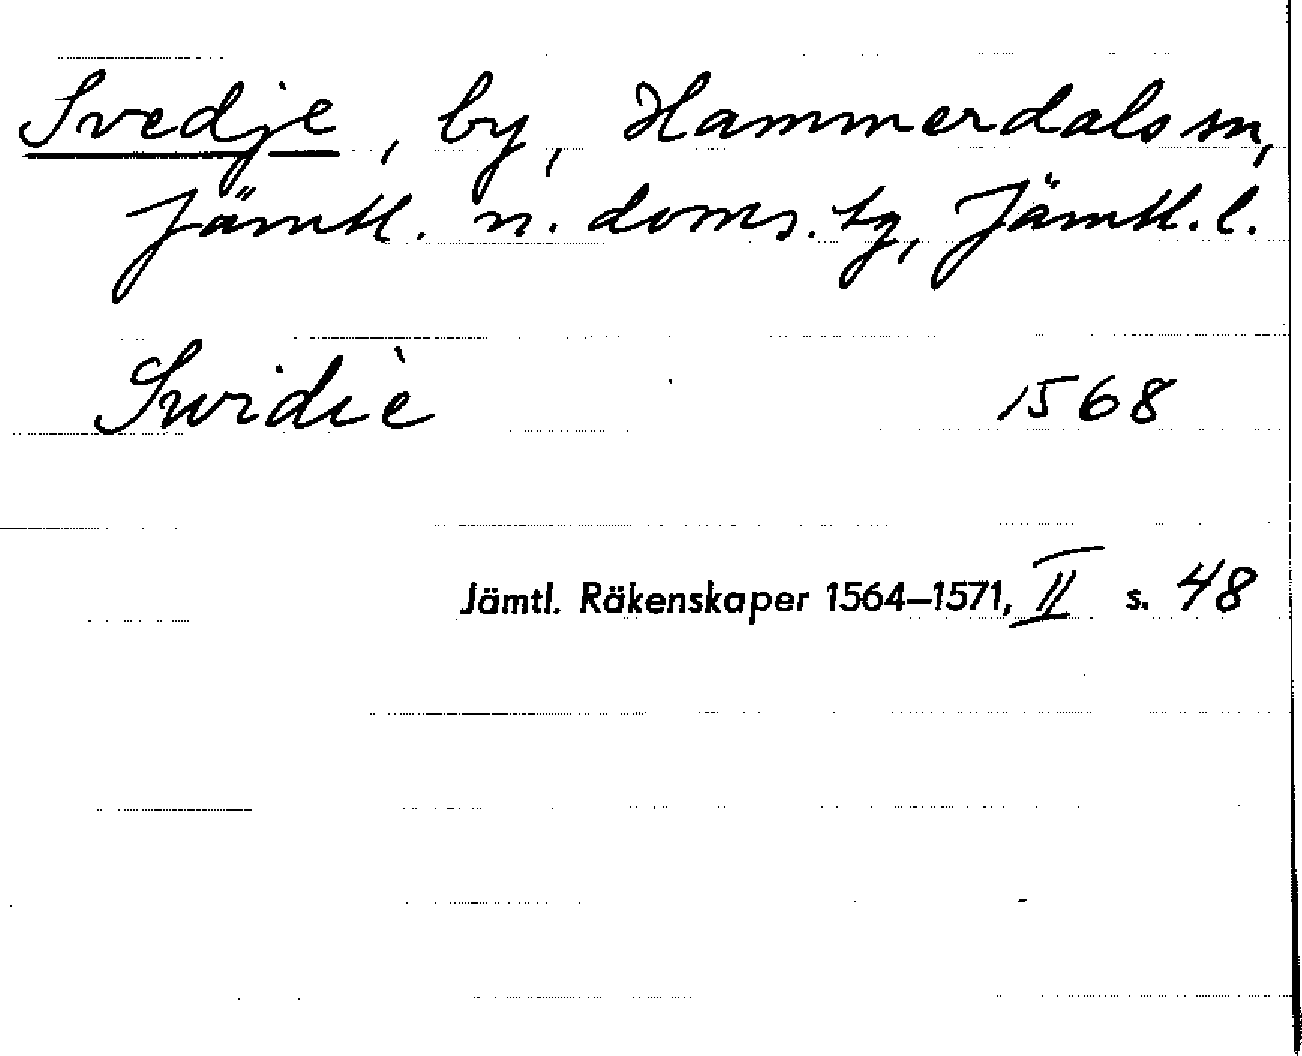 Svedje, by, Hammerdals sn,
Jämtl. n. doms. tg, Jämtl. l.
Swidiè 1568
Jämtl. Räkenskaper 1564–1571, II s. 48